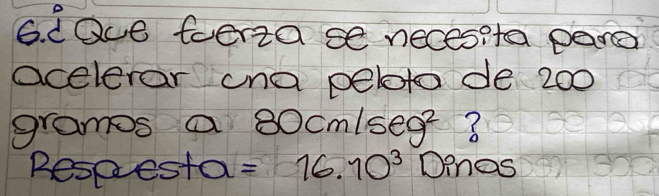 6.¿Que fuerza se necesita para
acelerar una pelota de 200
gramos a 80cm/seg² ?
Respuesta= 16.10³ Dinas